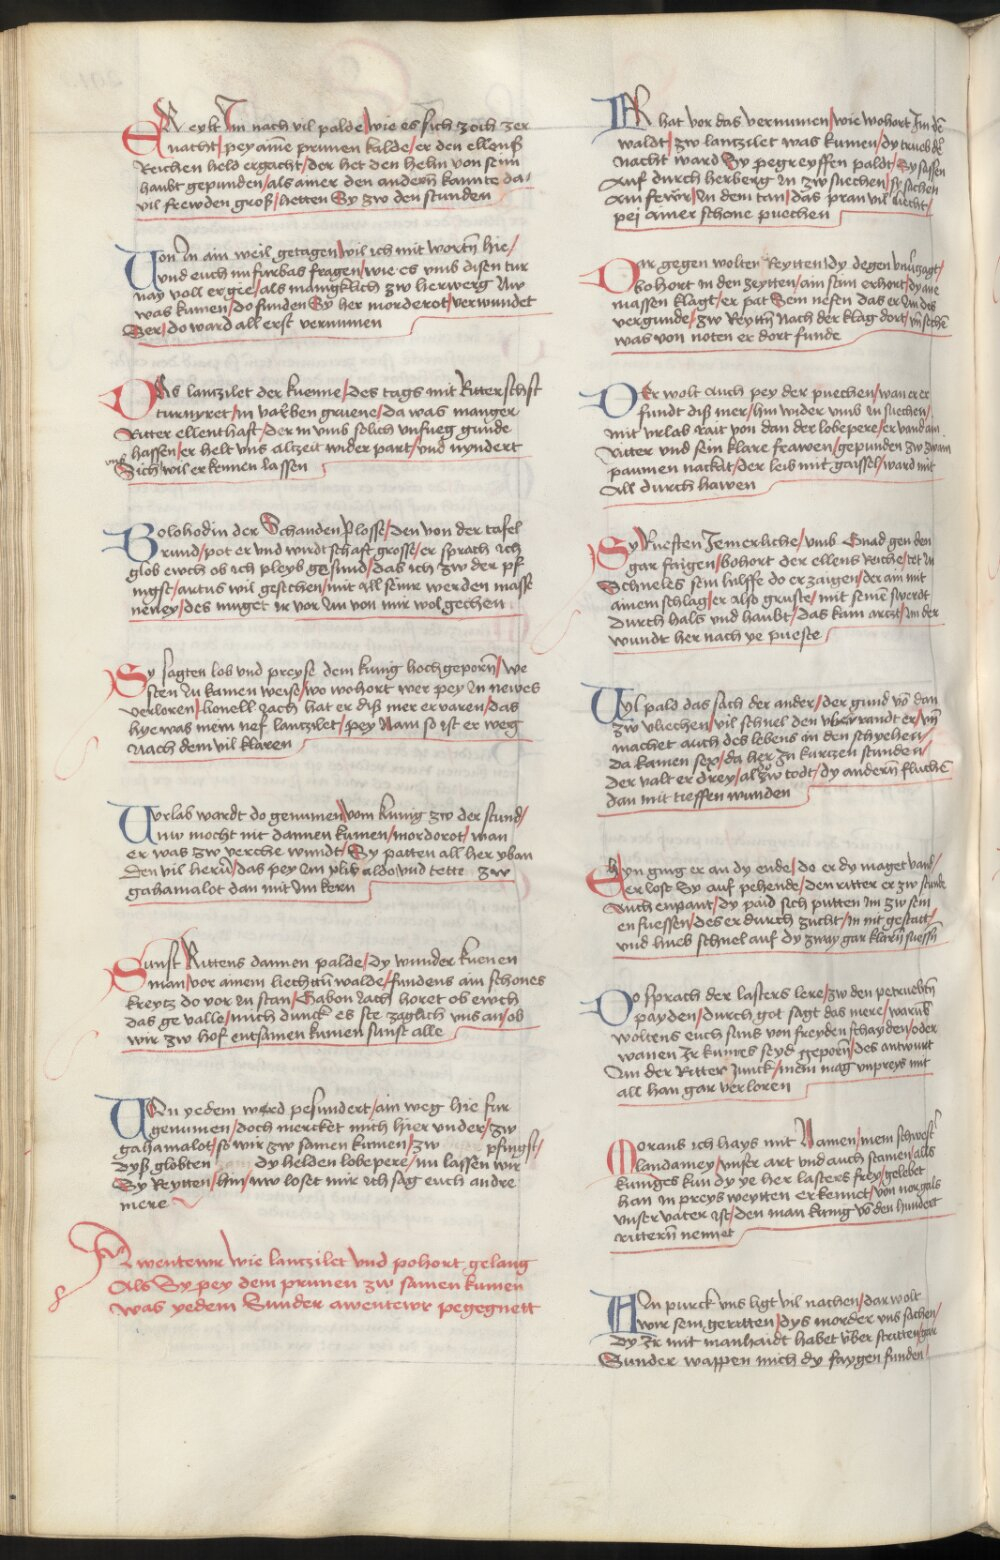 ER eylt Im nach vil palde / wie es sich zoch zer
nacht / pey aim̄e prunen kalde / er den ellenß
Reichen held ergacht / der het den helm von seim
haubt gepunden / als amer den anderñ kannte da /
vil frewden groß / hetten Sy zw den stunden
Von In ain weil getagen / wil ich mit wortñ hie /
Vnd euch nu furbas fragen / wie es vmb disen tur
nay voll ergie / als manigklich zw herwerg Nw
was kumen / do funden Sy her morderot / verwundet
Ser / do ward all erst vernumen
DAs lanzilet der kuenne / des tags mit Ritterschafft
turnyret / in varben gruene / da was manger
Ritter ellenthafft / der in vmb solich vnfueg gunde
hassen / er helt vns altzeit wider part / vnd nyndert
Sich wil erkennen lassen
Bolohodin der Schanden plosse / den von der tafel
rund / pot er vnd wirdtschafft grosse / er sprach Ich
glob ewch ob ich pleyb gesund / das ich zw der pf
ingst / artus wil gesechen / mit all seinr werden masse
neney / des muget ir vor An von mir wol gechen
Sy sagten lob vnd preyse dem kunig hochgeporñ / we
sten In kamen weise / wo wohort wer pey In newes
verloren / lionell Jach hat er diß mer ervaren / das
hye was mein nef lantzilet / pey Nam so ist er weg
Nach dem vil klaren
Vrlab wardt do genumen / vom kunig zw der stund /
Nw mocht nit dannen kumen / mordorot / wan
er was zw verche wundt / Sy patten all her yban
den vil herñ / das pey Im plib aldo vnd tette zw
gahamalot dan mit Im kern
Sunst Rittens dannen palde / dy wunder kuenen
man / vor ainem liechtñ walde / fundens ain schones
kreytz do vor In stan / Gabon Jach horet ob ewch
das ge valle / mich dunck es ste zaglich vns an / ob
wir zw hof entsamen kumen sunst alle
VOn yedem werd pesundert / ain weg hie fur
genumen / doch mercket mich hier vnder / zw
gahamalot / so wir zw samen kumen / zw pfingst /
dyß globten dy helden lobepere / nu lassen wir
Sy Reytten / hin / nw loset mir ich sag euch andre
mere
Awentewr wie lantzilet vnd pohort gelang
Als Sy pey dem prunen zw samen kumen
was yedem Sunder awentewr pegegnett
IR hat vor das vernumen / wie wohort Im dē
waldt / zw lantzilet was kumen / dy trueb der
nacht ward Sy pegreyffen paldt / Sy sassen
Auf durch herberg In zw suechen / sy sachen
Ain fewr / In dem tan / das pran vil liecht /
pei ainer schone puechen
Dar gegen wolten Reytten / dy degen vnuerzagt /
bohort in den zeytten / ain stim erhort / dy ane
massen klagt / er pat Sein nefen das er Im des
vergunde / zw Reyttñ Nach der klag dort / vñ sechē
was von noten er dort funde
DEr wolt Auch pey der puechen / wan er er
fundt diß mer / hin wider vmb In suechen /
mit vrlab rait von dan der lobepere / er vand ain
Ritter vnd sein klare frawen / gepunden zw zwain
paumen nackat / der leib mit gaissel / ward mit
All durch hawen
Sy Ruefften Jemerliche / vmb Gnad gen den
gar faigen / bohort der ellens Reiche / tet In
Schnelles sein hilffe do erzaigen / der ain mit
ainem schlag / er also gruste / mit seinē swerdt
durch hals vnd haubt / das kain arczt / In der
wundt her nach ye pueste
Vyl pald das sach der ander / der gund vō dan
zw vliechen / vil schnel den vberrandt er / vñ
machet auch des lebens an den schyechen /
da kamen sex / da her In kurtzen stunden /
der valt er drey / al zw todt / dy anderñ fluchē
dan mit tieffen wunden
Hyn ging er an dy ende / do er dy maget vand /
er lost Sy auf pehende / den ritter er zw stunde
Auch enpant / dy paid sich putten Im zw sein
en fuessen / des er durch zucht / in nit gestatt /
vnd hueb schnel auf dy zway gar klarñ suessñ
Do sprach der lasters lere / zw den petruebtñ
payden / durch got sagt das mere / warūb
woltens euch suns von freyden schayden / oder
wanen Ir kumes seyd geporñ / des antwurt
Im der Ritter Junck / mein mag vnpreys mit
all han gar verloren
Morans ich hays mit Namen / mein schwester
landamey / vnser art vnd auch stamen / alls
kuniges kun dy ye her lasters frey / gelebet
han in preys weytten erkennet / von norgals
vnser vater ist / den man kunig vō den hundert
rittern nennet
AIn purck vns ligt vil nachen / dar wolt
wir sein geritten / dys morder vns sachen /
dy Ir mit manhaidt habet vber stritten / gar
Sunder wappen mich dy faygen funden /